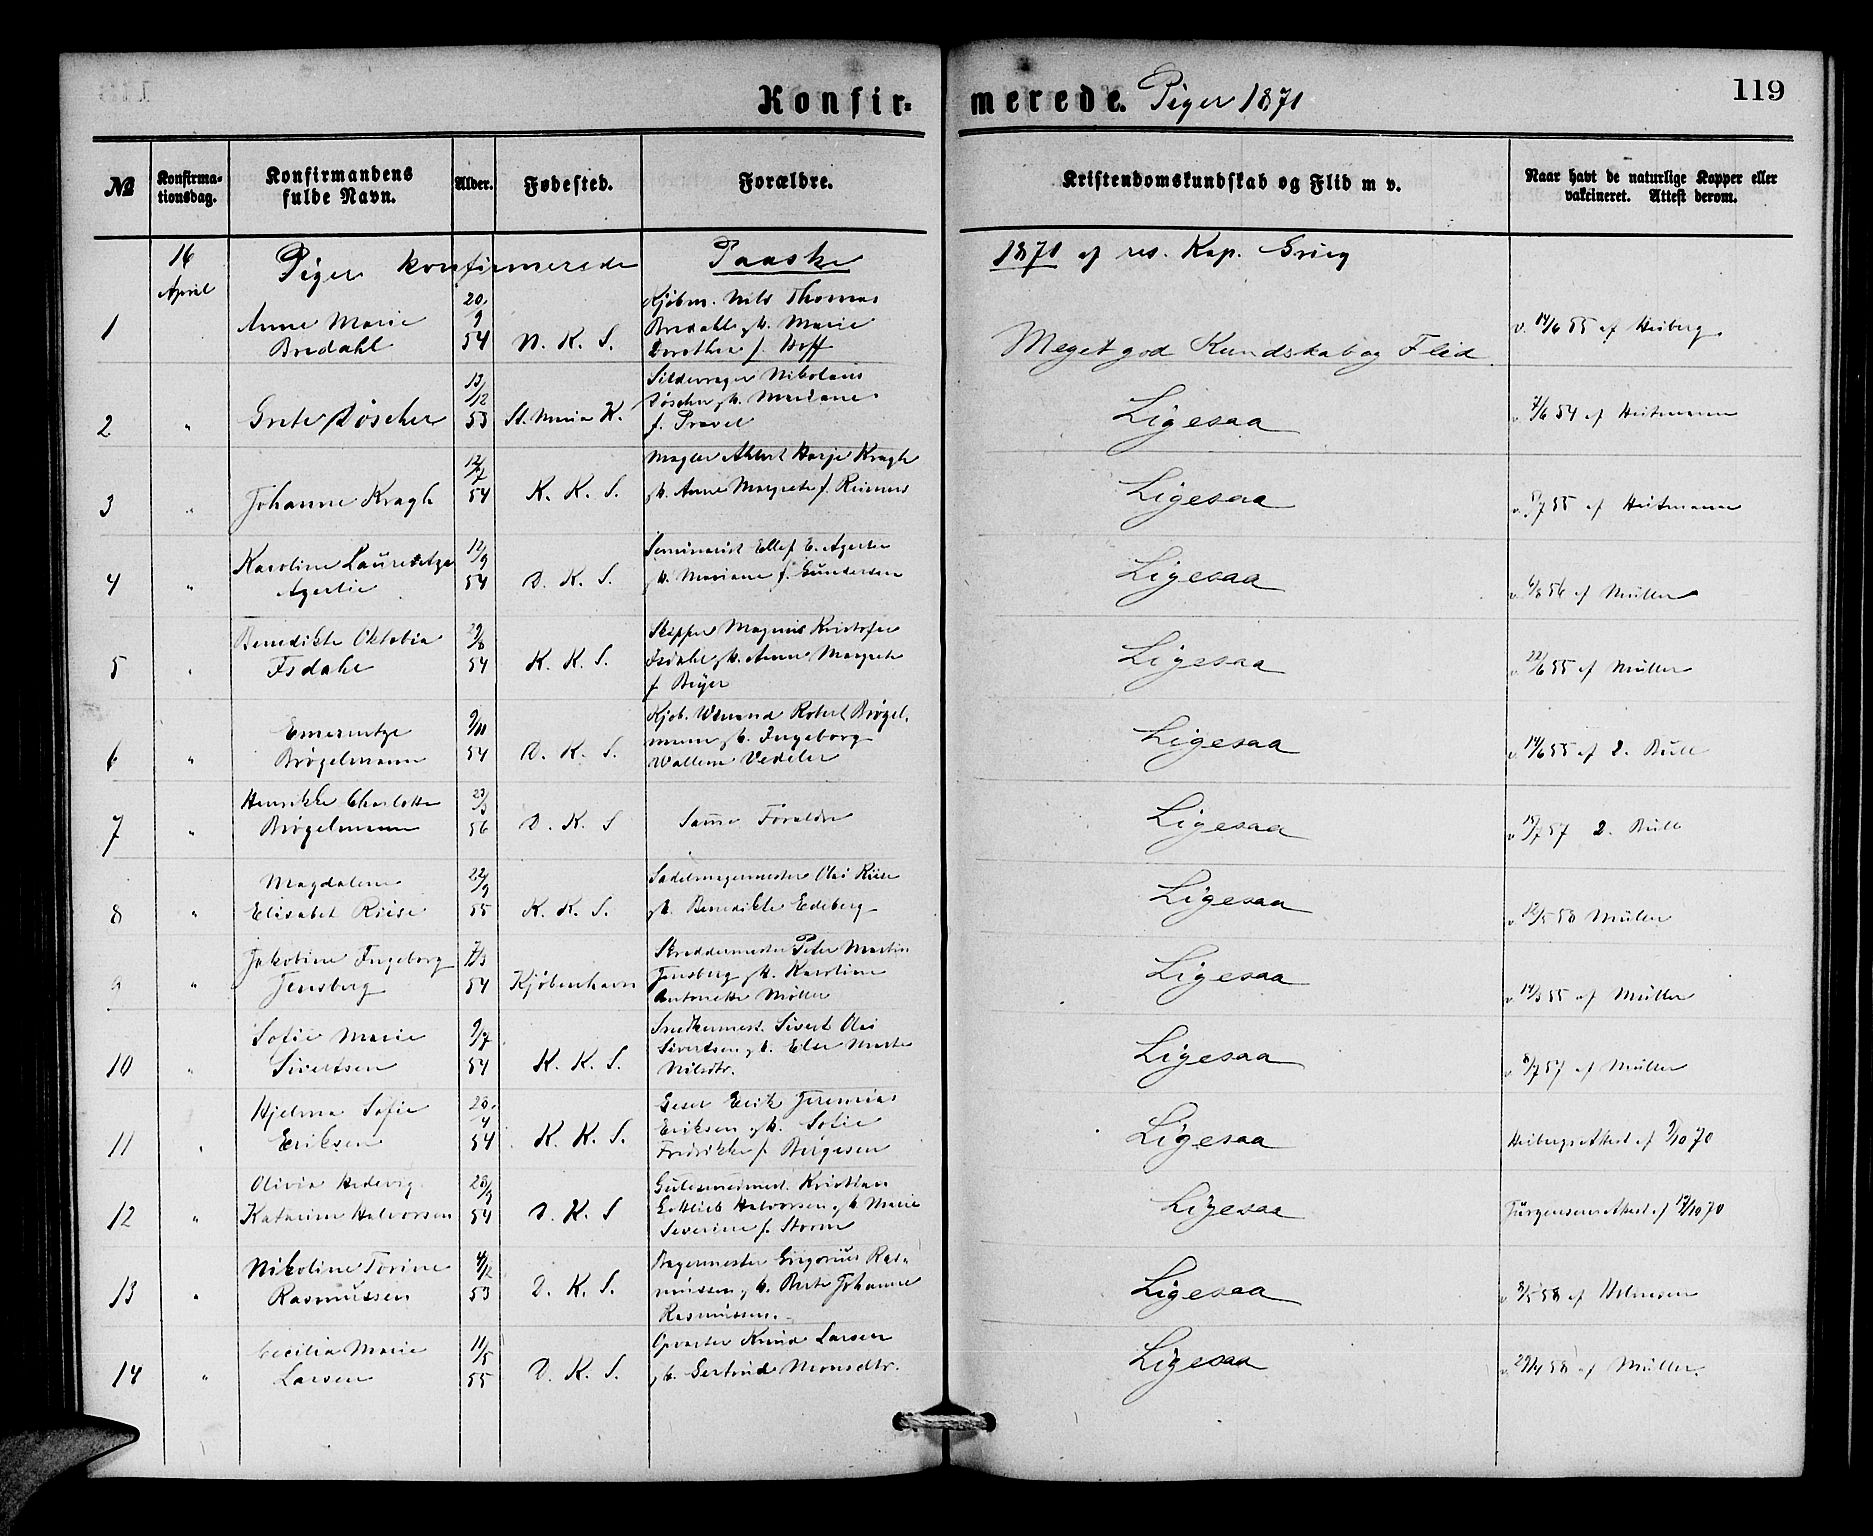 Konfirmerede. Piger 1871
119
№ Konfirmationsdag. Konfirmandens fulde Navn. Alder. Fødested. Forældre. Kristendomskundskab og Flid m v. Naar havt de naturlige Kopper eller vakcineret. Attest derom.
16 April Piger konfirmerede Paaske 1871 af res. Kap. Grieg
1 Anne Marie Bredahl 20/9 54 N. K. S. Kjøbm. Nils Thomas
Bredahl, h. Marie
Dorothea f. Hoff
Meget god Kundskab og Flid v. 14/6 55 af Heiberg
2 " Grete Döscher 13/12 53 St. Maria K. Sildevrager Nikolaus
Döscher, h. Mariane
f. Pravel
Ligesaa v. 7/6 54 af Heitmann
3 " Johanne Kragh 54 K. K. S. Mægler Ahlert Horje Kragh
h. Anne Margrete f. Reimers
Ligesaa v. 55 af Heitmann
4 " Karoline Laurentze Agertie 12/9 54 D. K. S. Seminarist Ellef E. Agertie
h. Mariane f. Gundersen
Ligesaa v. 6/8 56 af Müller
5 " Benedikte Oktavia Isdahl 29/8 54 K. K. S. Skipper Magnus Kristofer
Isdahl, h. Anne Margrete
f. Beyer
Ligesaa v. 22/6 55 af Müller
6 " Emerentze Brøgelmann 9/11 54 D. K. S. Kjøb. Robert Brøgel-
mann, h. Ingeborg
Wallem Vedeler
Ligesaa v. 14/6 55 af J. Bull
7 " Henrikke Charlotte Brøgelmann 23/3 56 D. K. S Samme Forældre
Ligesaa v. 57 J. Bull
8 " Magdalene Elisabet Riise 22/9 55 K. K. S. Sadelmagermester Olai Riise
h. Benedikte Edeberg
Ligesaa v. 12/5 58 Müller
9 " Jakobine Ingeborg Jensberg 54 Kjøbenhavn Skræddermester Peter Martin
Jensberg, h. Karoline
Antonette Møller
Ligesaa v. 14/3 55 af Müller
10 " Sofie Marie Sivertsen 9/7 54 K. K. S. Snedkermest. Sivert Olai
Sivertsen, h. Else Marte
Nilsdtr.
Ligesaa v. 8/7 57 af Müller
11 " Hjelma Sofie Eriksen 20/4 54 K. K. S. Erik Jeremias
Eriksen, h. Sofie
Fredrikke f. Børgesen
Ligesaa Heibergs Attest af 9/10 70
12 " Olivia Hedevig Katarine Halvorsen 28/9 54 D. K. S Kristian
Gottlieb Halvorsen, h. Marie
Severine f. Storm
Ligesaa Jürgensens Attest af 17/10 70
13 " Nikoline Torine Rasmussen 4/12 53 D. K. S. Bagermester Grigorius Ras-
mussen, h. Berte Johanne
Rasmussen.
Ligesaa v. 9/5 58 af Holmesen
14 " Cecilia Marie Larsen 11/5 55 D. K. S. Opvarter Knud Larsen
h. Gertrud Monsdtr.
Ligesaa v. 29/4 58 af Müller.